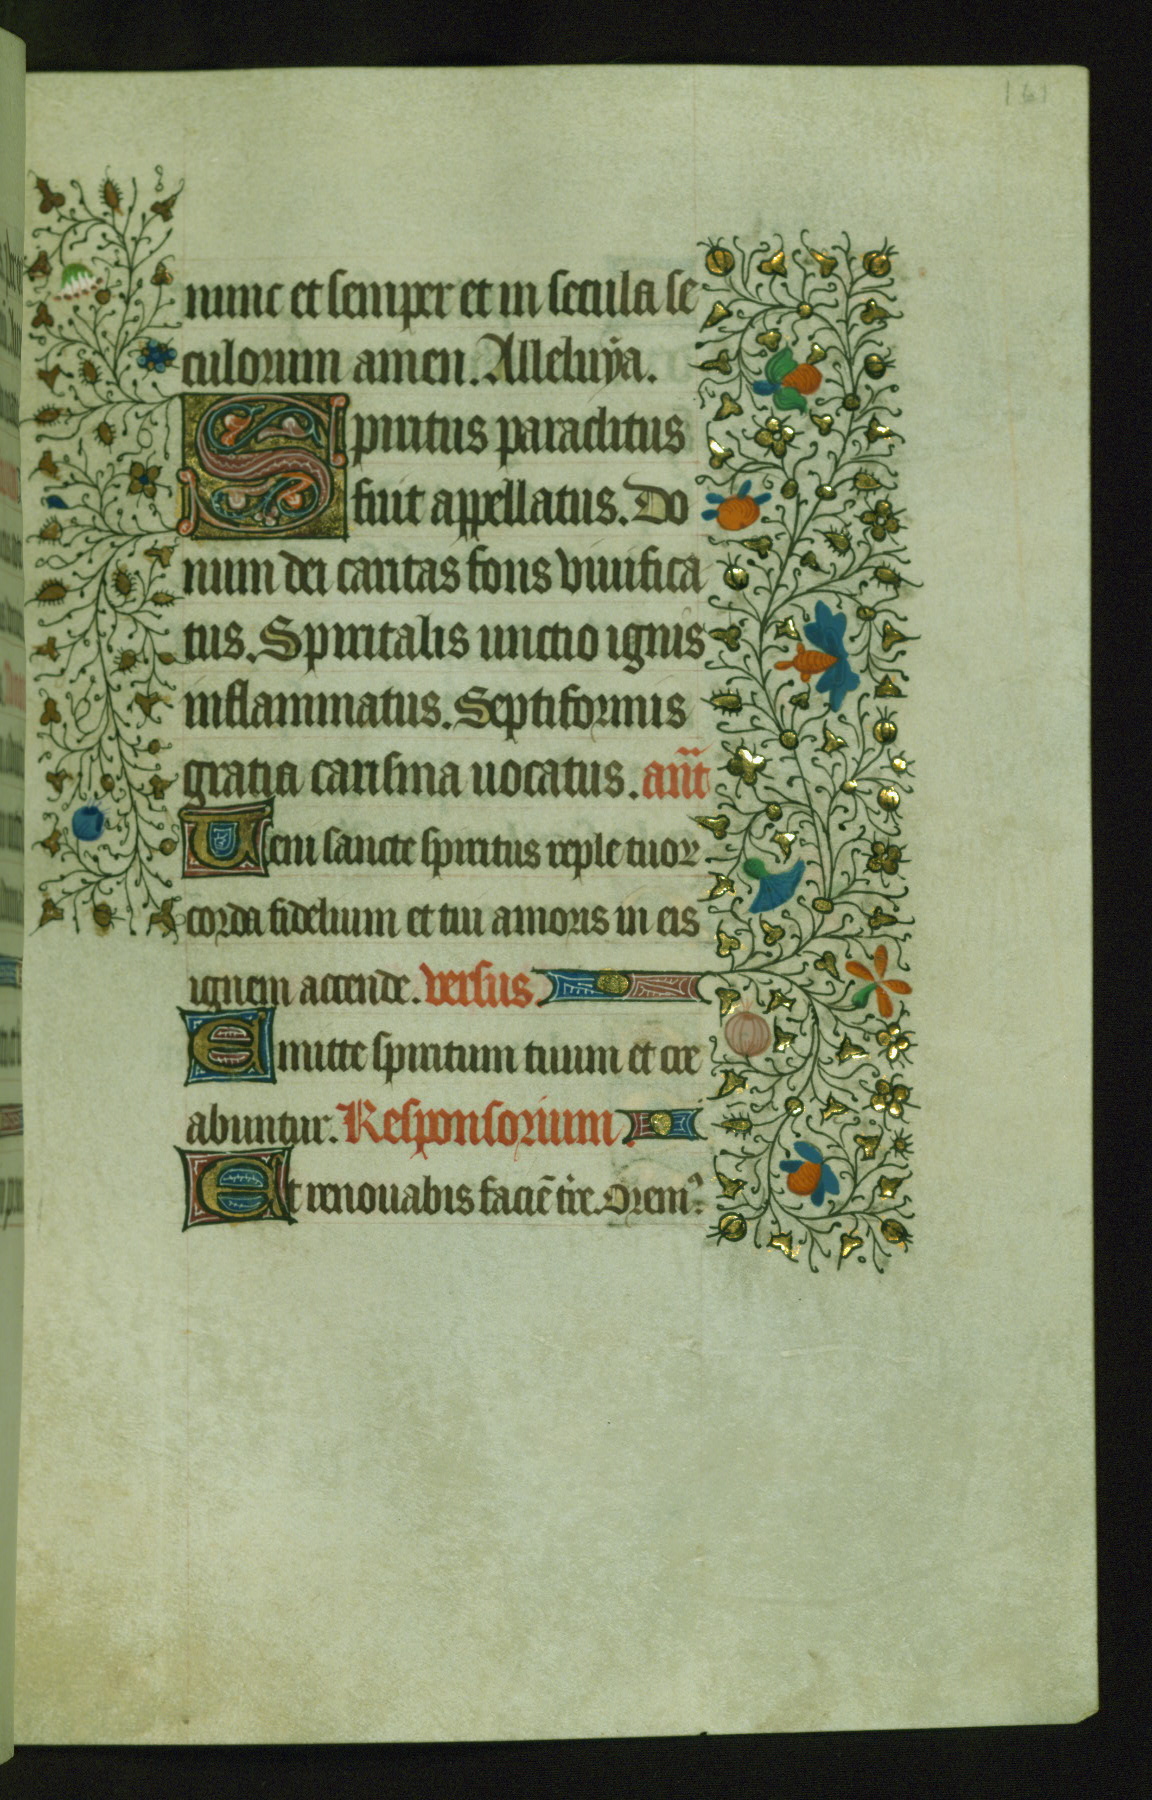 161
nunc et semper et in secula se
culorum amen. Alleluya.
Spiritus paraclitus
fuit appellatus. Do
num dei caritas fons viuifica
tus. Spiritalis unctio ignis
inflammatus. Septiformis
gratia carisma uocatus. ant̄
Veni sancte spiritus reple tuoꝝ
corda fidelium et tui amoris in eis
ignem accende. versus
Emitte spiritum tuum et cre
abuntur. Responsorium.
Et renouabis faciē t̄re. Oremꝰ.